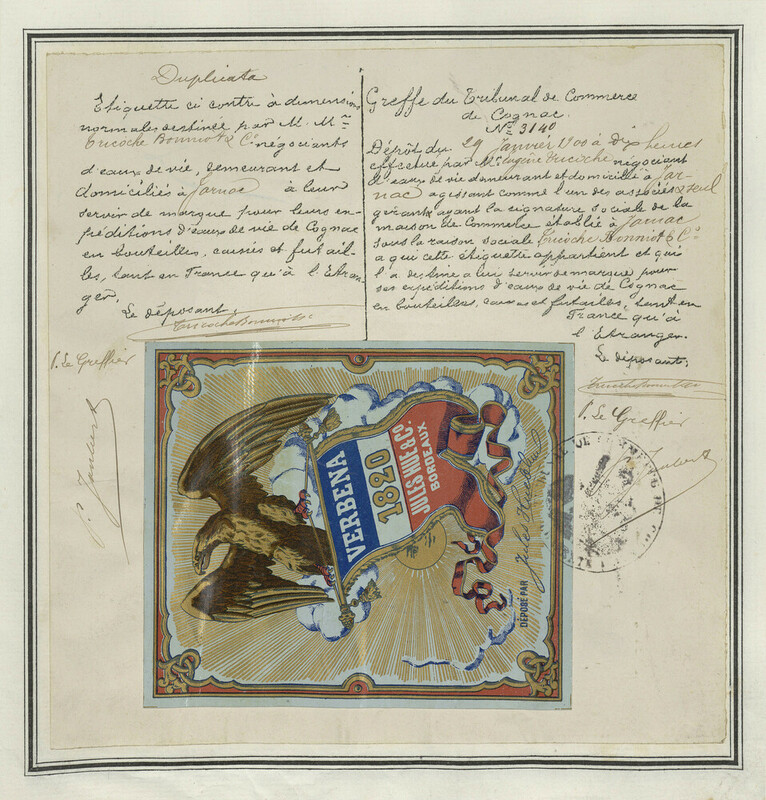 Duplicata
Etiquette ci contre à dimensions
normales destinée par M. Mrs
Tricoche Bonniot & Co négociants
d'eaux de vie, demeurant et
domiciliés à Jarnac à leur
servir de marque pour leurs ex-
péditions d'eaux de vie de Cognac
en bouteilles, caisses et futail-
les, tant en France qu'à l'Etran
ger.
Le déposant,
Tricoche Bonniot & Co
P. Le Greffier
Joubert
Greffe du Tribunal de Commerce
de Cognac.
No 3140
Dépôt du 29 Janvier 1900 à dix heures
effectué par Mr Tricoche négociant
d'eaux de vie demeurant et domicilié à Jar-
nac agissant comme l'un des associés & seul
gérant ayant la signature sociale de la
maison de Commerce établie à Jarnac
sous la raison sociale Tricoche Bonniot & Co
a qui cette étiquette appartient et qui
l'a destiné a lui servir de marque pour
ses expéditions d'eaux de vie de Cognac
en bouteilles, caisses et futailles, tant en
France qu'à
l'Etranger.
Le déposant,
Tricoche Bonniot & Co
P. Le Greffier
Joubert
VERBENA
1820
JULES HUE & Co.
BORDEAUX
DÉPOSÉ PAR